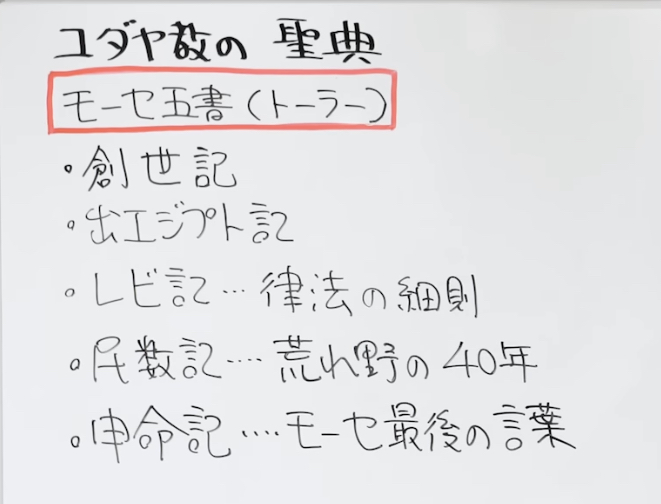 ユダヤ教の 聖典
モーセ五書(トーラー)
・創世記
・出エジプト記
・レビ記…律法の細則
・民数記‥‥荒れ野の40年
・申命記‥‥モーセ最後の言葉